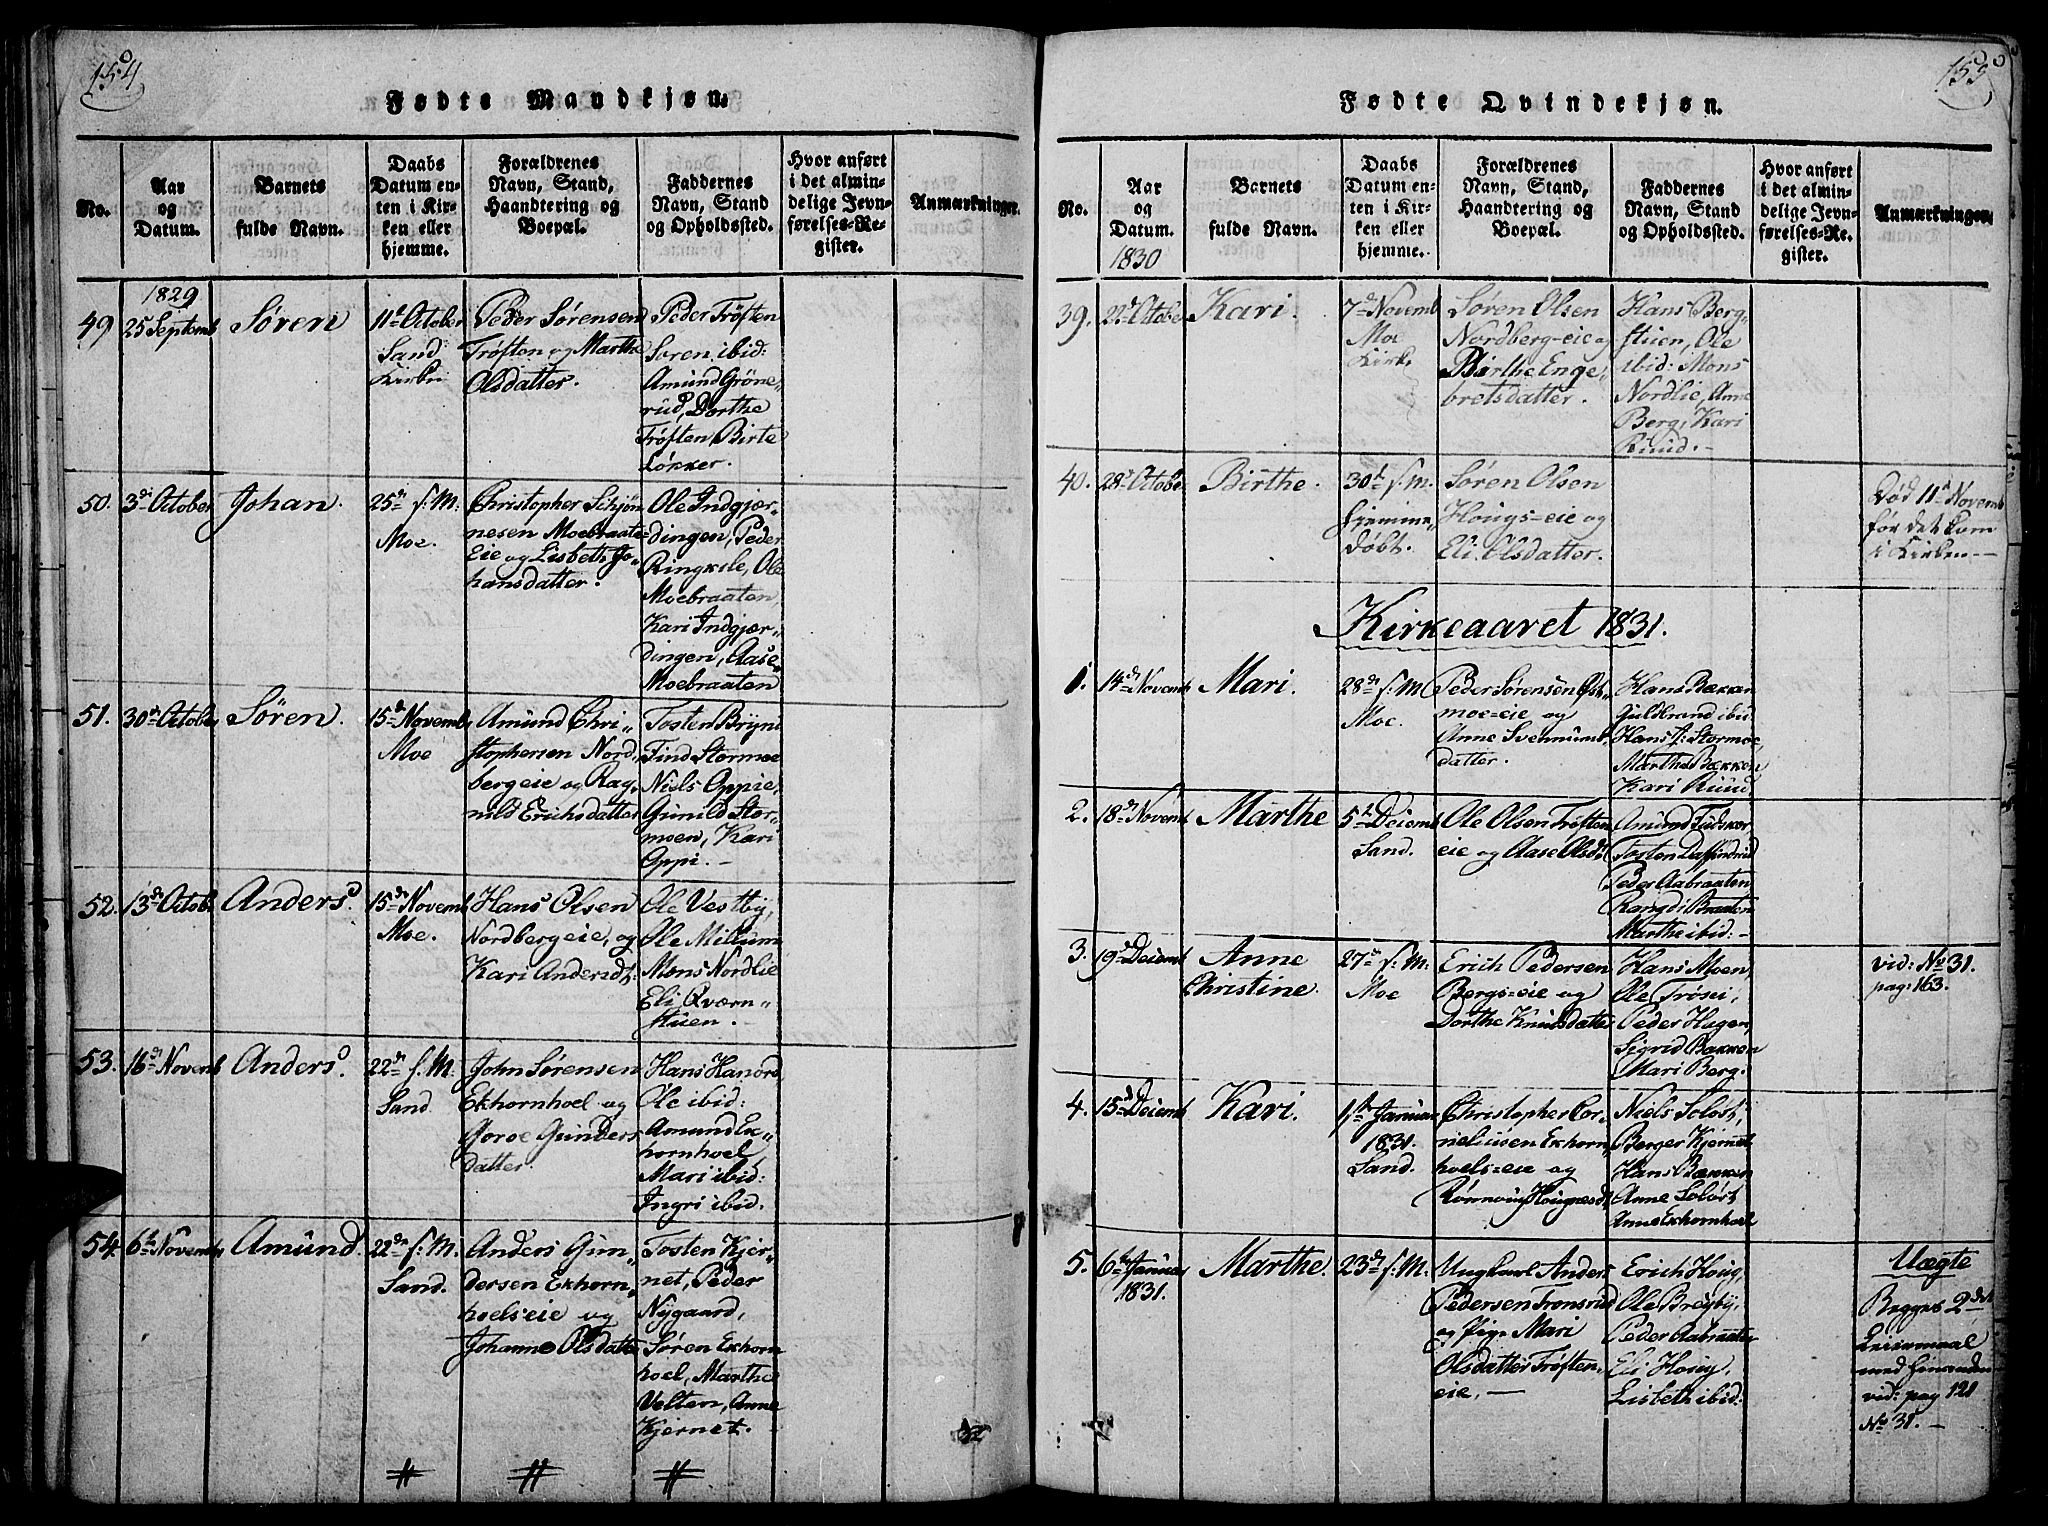 154
Fødte Mandkjøn.
No.
Aar
og
Datum.
Barnets
fulde Navn.
Daabs
Datum en-
ten i Kir-
ken eller
hjemme.
Forældrenes
Navn, Stand,
Haandtering og
Boepæl.
Faddernes
Navn, Stand
og Opholdssted.
Hvor anført
i det almin-
delige Jevn-
førelses-Re-
gister.
Anmærkninger.
1829
49
25 Septemb
Søren
11te October
Sand
Kirke
Peder Sørensen
Trøften og Marthe
Olsdatter.
Peder Trøften
Soren ibid:
Amund Grøne„
rud, Dorthe
Trøften, Birte
Løkker.
50.
3die October
Johan.
25de s: M:
Moe.
Christopher Schjøn
nesen Moebraate
Eie og Lisbeth Jo„
hansdatter.
Ole Indgjær„
dingen, Peder
Ringkile, Ole
Moebraaten,
Kari Indgjær„
dingen, Aase
Moebraaten
51.
30de Octobr
Søren.
15de Novemb
Moe
Amund Chri„
stophersen Nord„
bergeie og Rag„
nild Erichsdatter
Tosten Brynie
Find Stormoe
Niels Oppie,
Gunild Stor„
moen, Kari
Oppi.—
52.
13de Octob.
Anders.
15de Novemb
Moe.
Hans Olsen
Nordbergeie, og
Kari Andersdt:
Ole Vestby,
Ole Millum
Mons Nordlie
Eli Qværn„
stuen.—
53.
16de Novemb
Anders.
22de s. M.
Sand.
John Sørensen
Ekhornhoel og
Goroe Gunders
datter.
Hans Hanord
Ole ibid:
Amund Ek„
hornhoel,
Mari ibid:
Ingri ibid.
54.
6te Novemb
Amund.
22de s: M.
Sand.
Anders Gun„
dersen Ekhorn„
hoelseie og
Johanne Olsdatter
Tosten Kjer„
net, Peder
Nygaard,
Søren Ekhorn
hoel, Marthe
Velten, Anne
Kjernet.—
155
Fødte Qvindekjøn.
No.
Aar
og
Datum.
Barnets
fulde Navn.
Daabs
Datum en-
ten i Kir-
ken eller
hjemme.
Forældrenes
Navn, Stand,
Haandtering og
Boepæl.
Faddernes
Navn, Stand
og Opholdssted.
Hvor anført
i det almin-
delige Jevn-
førelses-Re-
gister.
Anmærkninger.
1830
39.
22de Octobe
Kari.
7de Novemb
Moe
Kirke
Søren Olsen
Nordberg-eie og
Birthe Enge„
bretsdatter.
Hans Berg„
stuen, Ole
ibid: Mons
Nordlie, Anne
Berg, Kari
Ruud.—
40.
28de Octobe
Birthe.
30te s. M.
hjemme„
døbt.
Søren Olsen
Hougs-eie og
Eli Olsdatter.
Død 11te Novemb
før det kom
i Kirken.—
Kirkeaaret 1831.
1.
14de Novemb
Mari.
28de s: M
Moe.
Peder Sørensen Øst„
moe-eie og
Anne Svennums„
datter.
Hans Bækken
Guldbrand ibid
Hans St: Stormoe,
Marthe Bækken
Kari Ruud
2.
18de Novemb
Marthe
5te Decemb
Sand.
Ole Olsen Trøften
eie og Aase Olsdt
Amund Fudskær
Tosten
Peder Aabraaten
Rangdi Braaten
Marthe ibid:—
3.
19de Decemb
Anne
Christine.
27de s: M.
Moe
Erich Pedersen
Bergs-eie og
Dorthe Knudsdatter
Hans Moen
Ole Trøsei,
Peder Hagen,
Sigrid Bækken
Mari Berg.
vid: No 31.
pag: 163.
4.
15de Decemb
Kari.
1ste Januar
1831.
Sand.
Christopher Cor„
neliusen Ekhorn„
hoels-eie og
Rønnoug Hougnesdt
Niels Soløst,
Berger Kjernet
Hans Bækken
Anne Soløst
Anne Ekhornhoel
5.
6te Januar
1831.
Marthe.
23de s: M.
Ungkarl Anders
Pedersen Tronsrud
og Pige Mari
Olsdatter Trøften„
eie.—
Erich Houg,
Ole Brøyby,
Peder Aabraaten
Eli Houg,
Lisbeth ibid:
Uægte
Begges 2det
Leiermaal
med hinanden
vid: pag 121
No 31.—